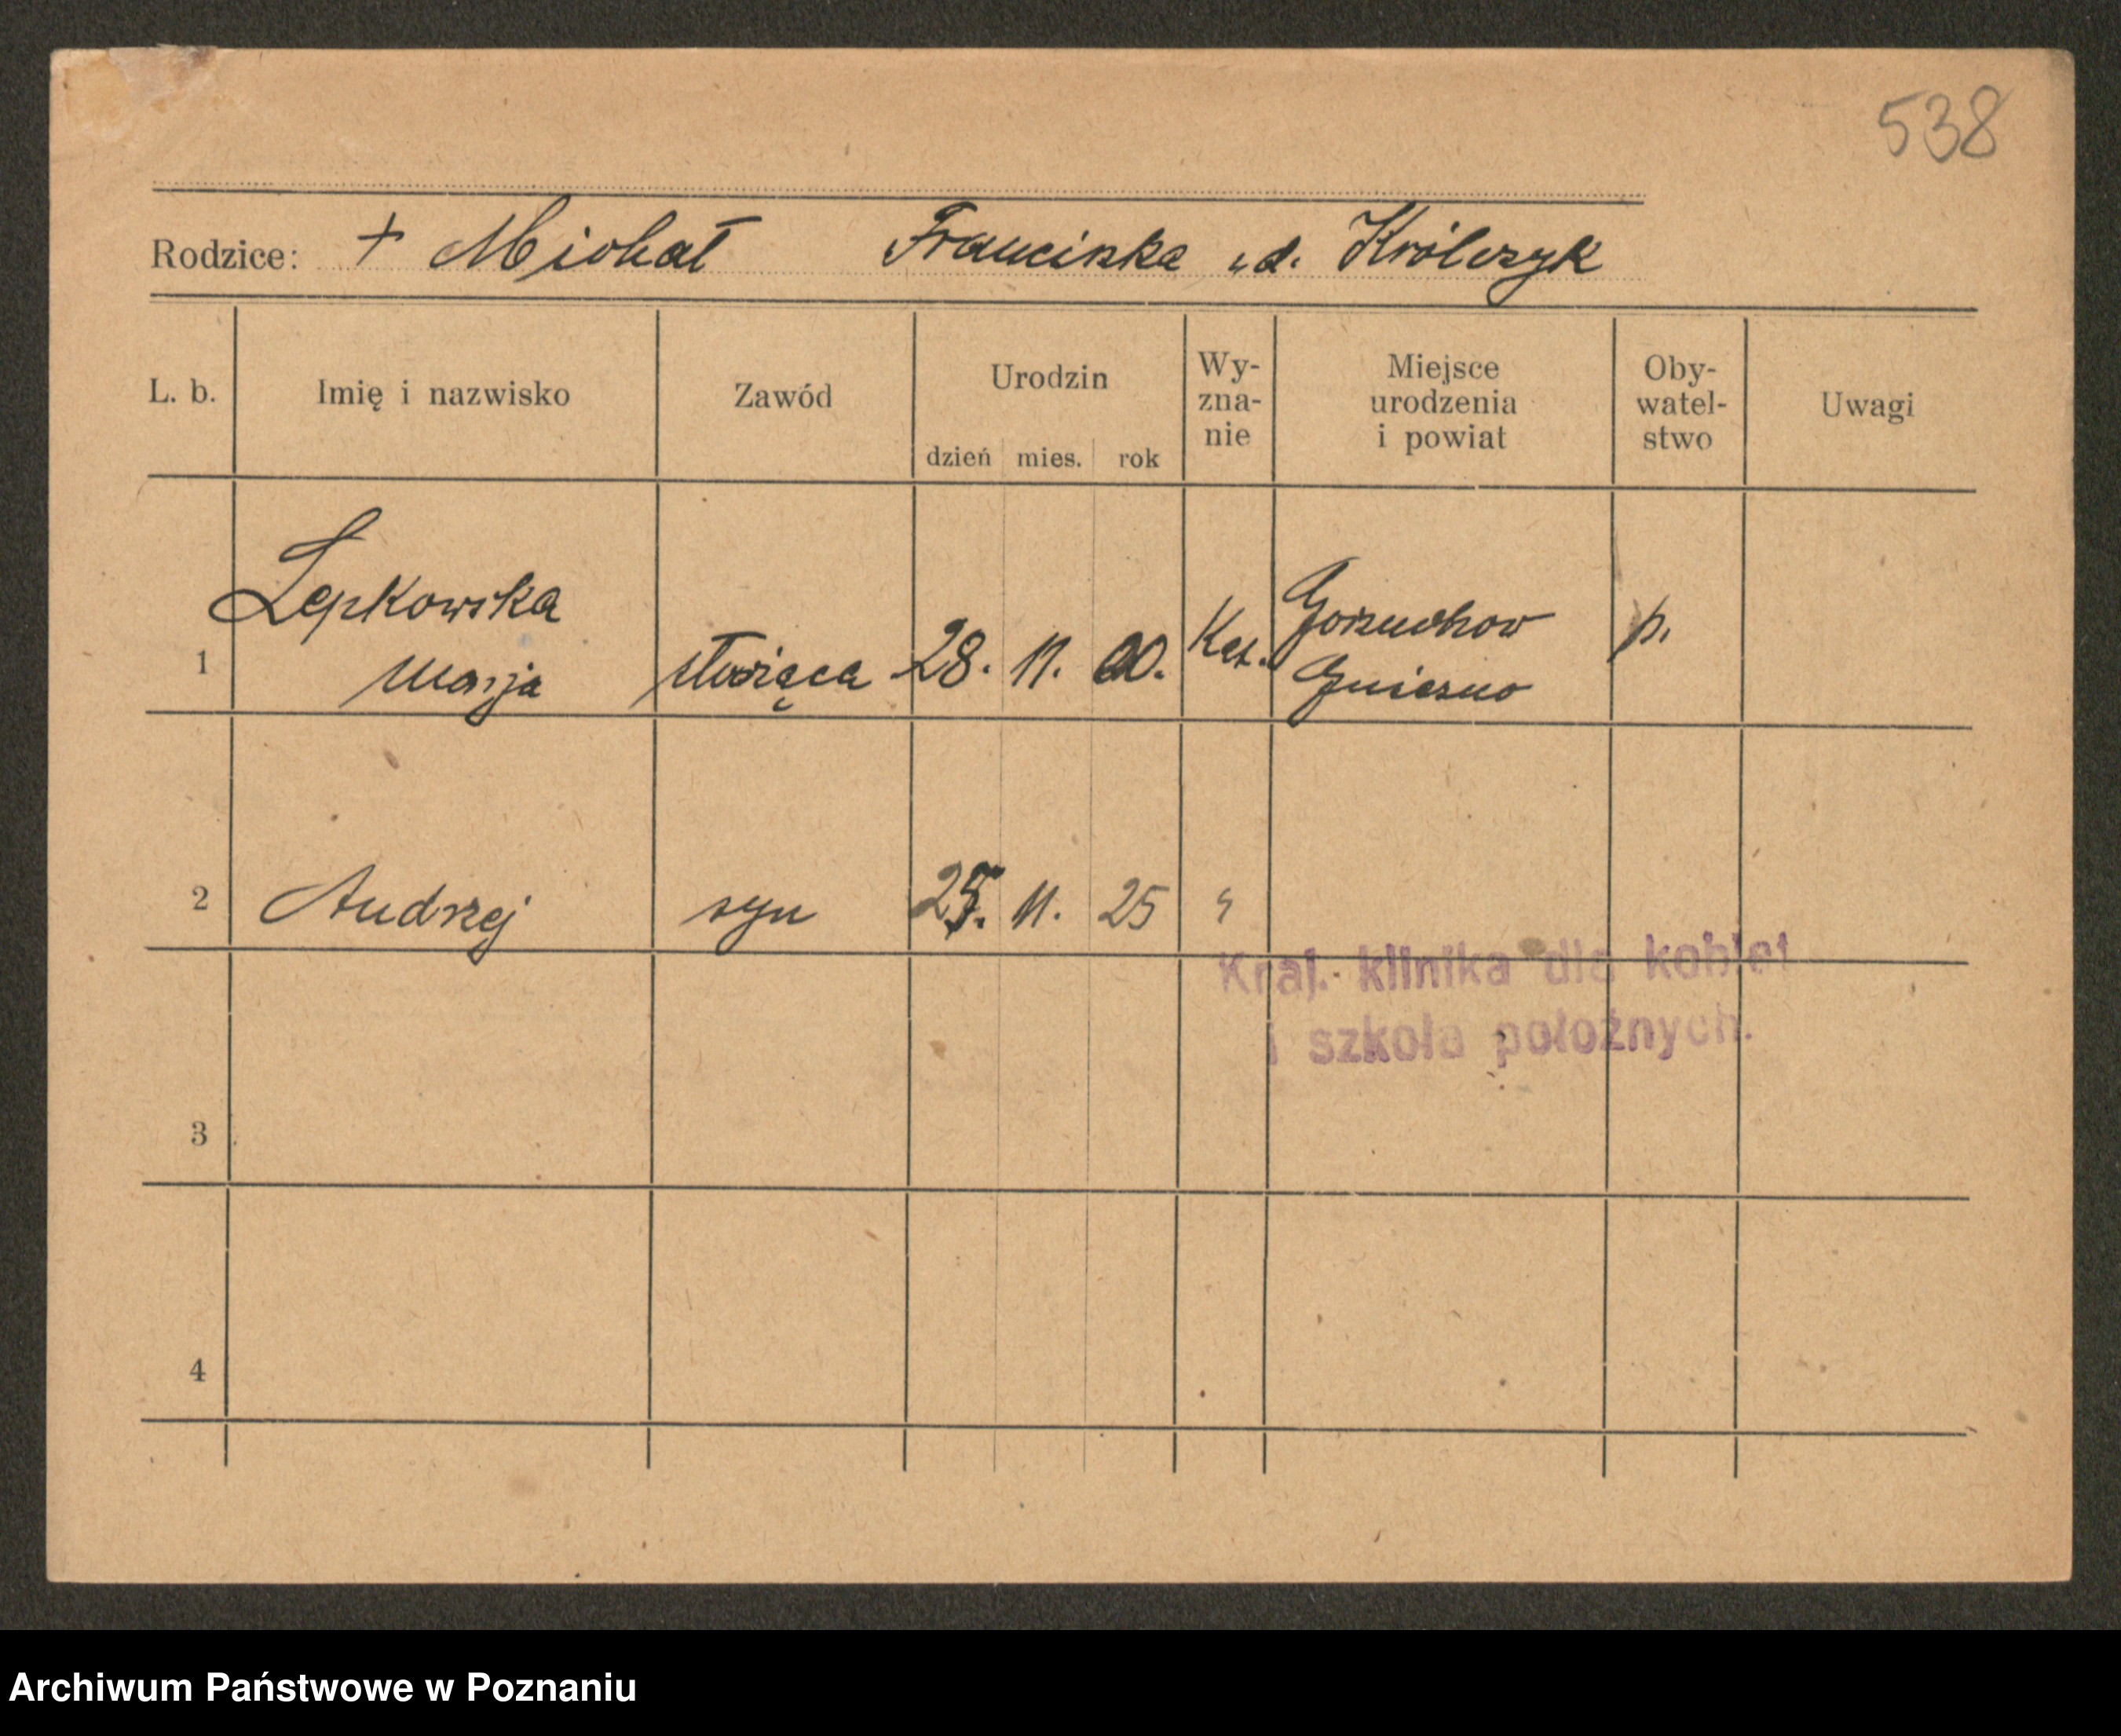 538
Rodzice: + Michał Franciszka ud. Królczyk
L. b. Imię i nazwisko Zawód Urodzin dzień mies. rok Wy-zna-nie Miejsce urodzenia i powiat Oby-watel-stwo Uwagi
Lepkowska
1 Marja służąca 28. 11. 00. Kat. Gorzuchow Gniezno p.
2 Andrzej syn 25. 11. 25 "
Kraj. klinika dla kobiet
i szkoła położnych.
3
4
Archiwum Państwowe w Poznaniu